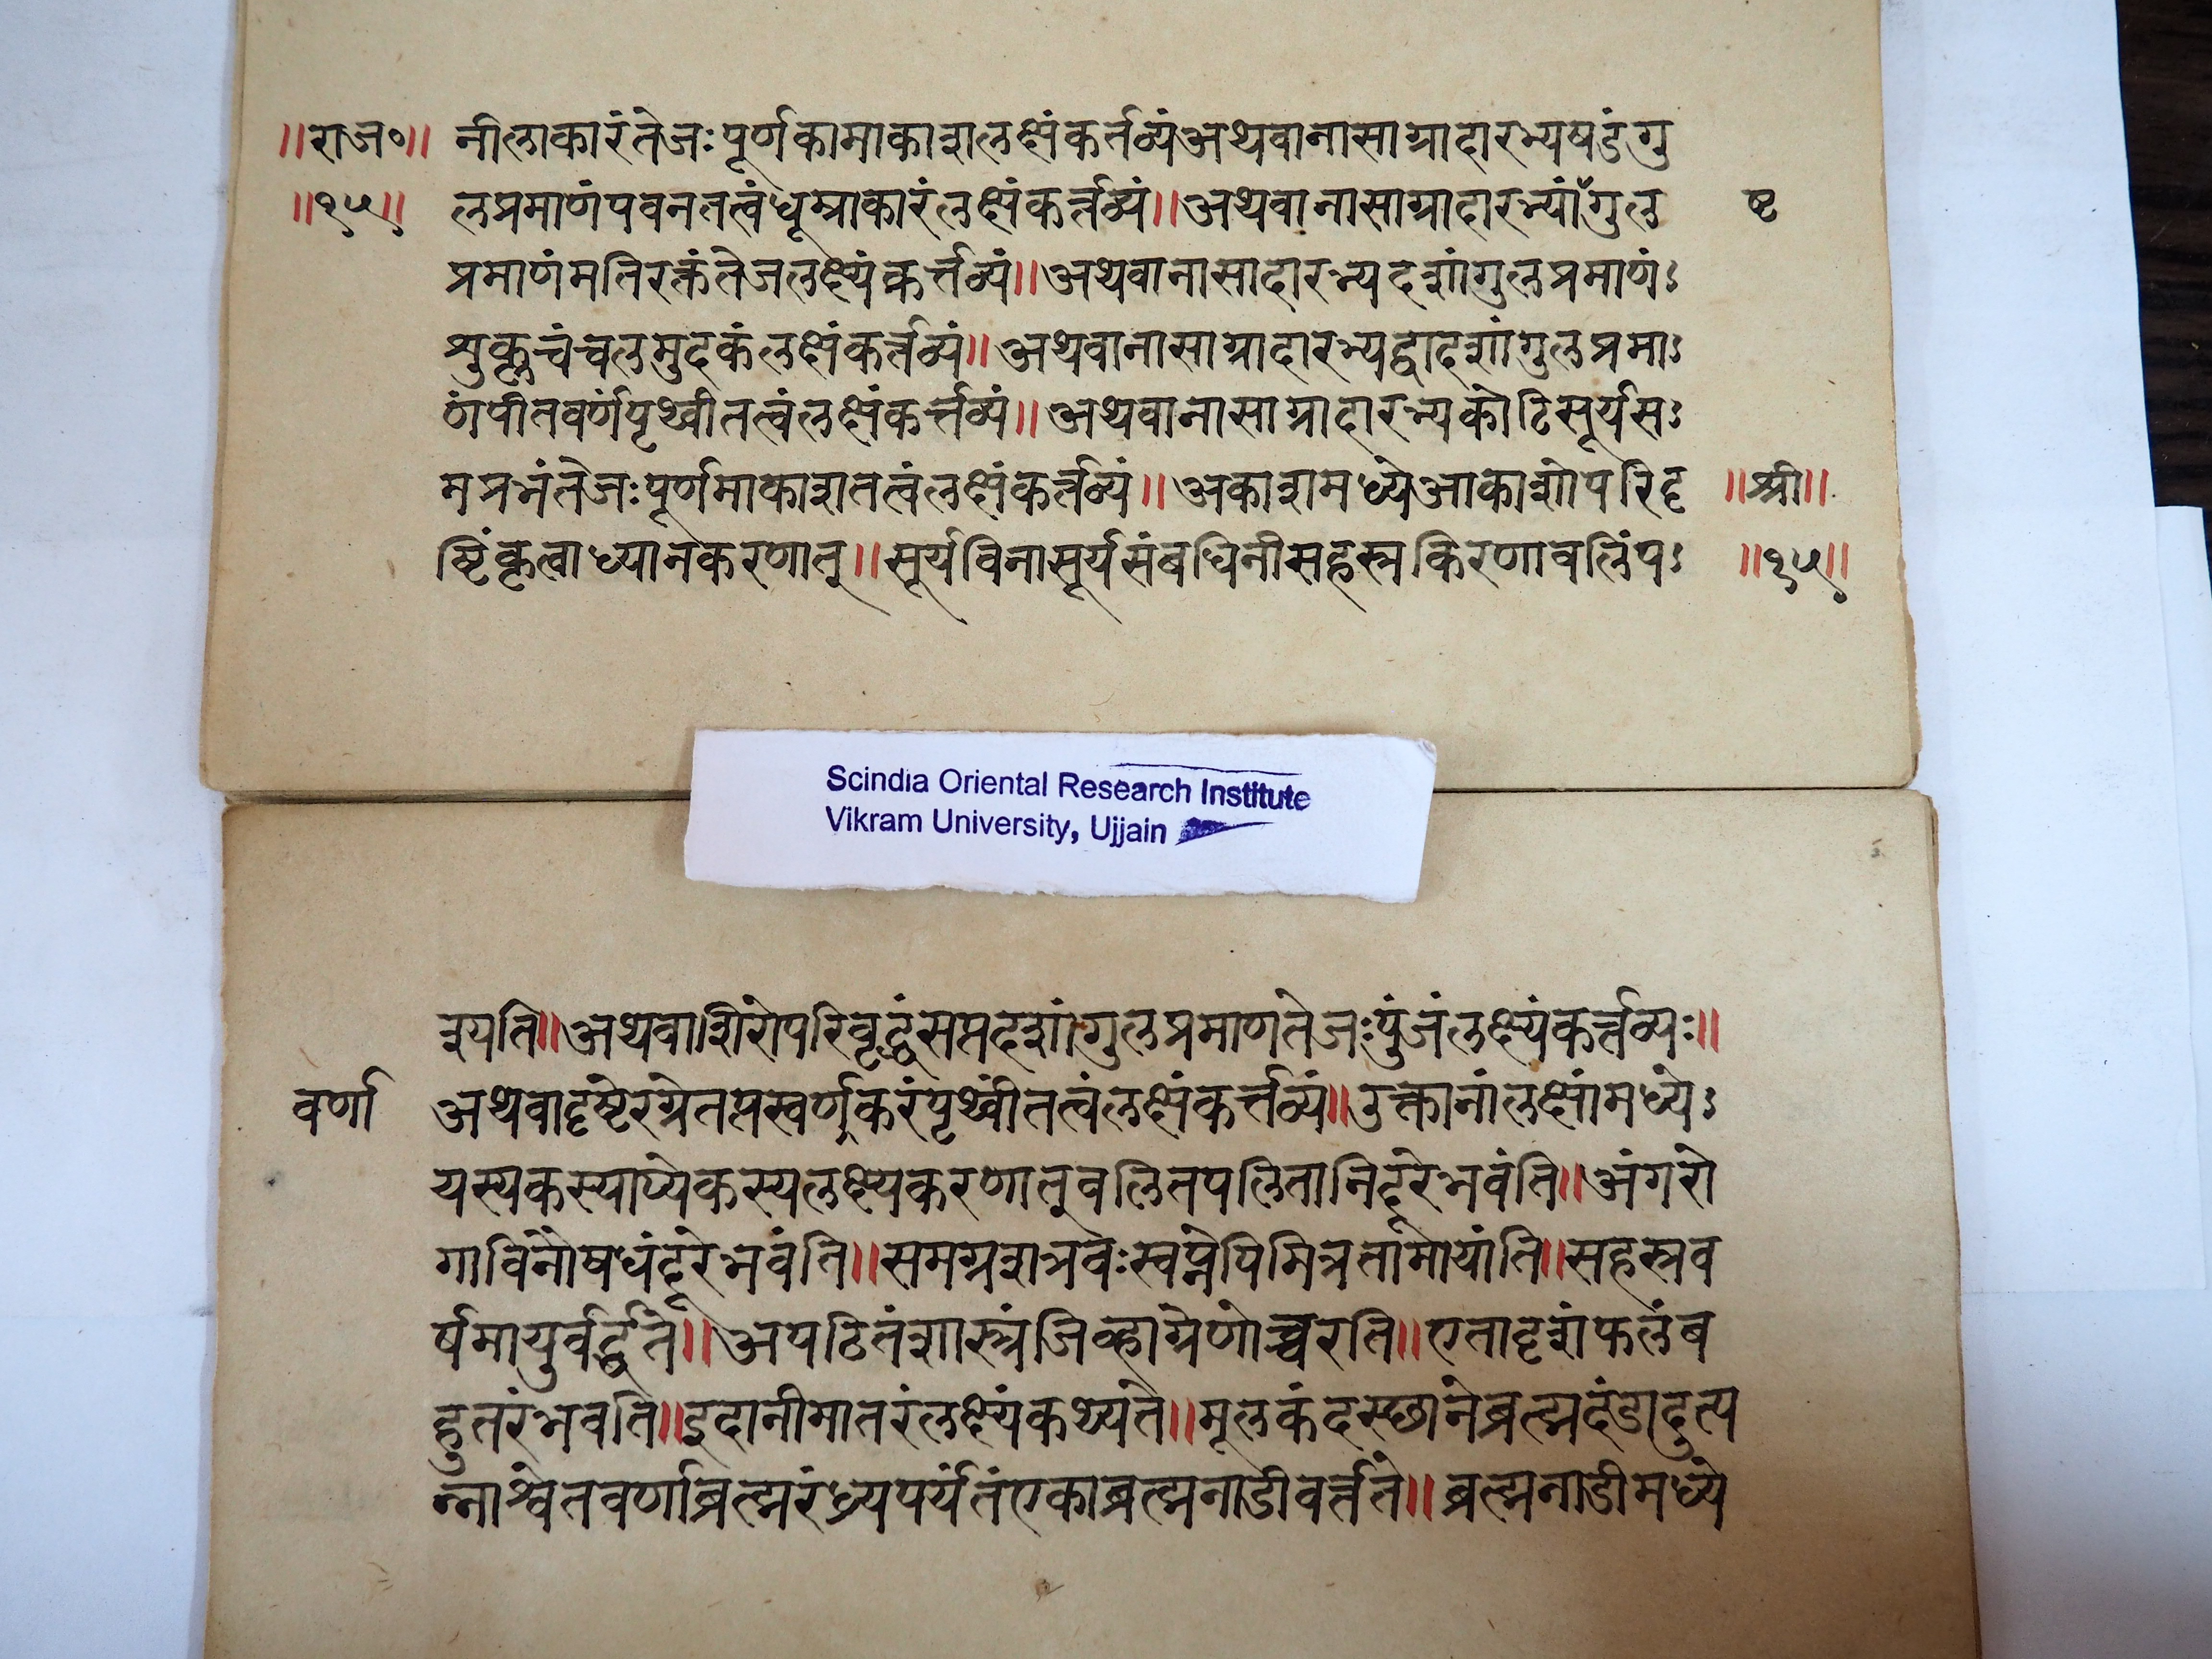 ॥राज॰॥ नीलाकारंतेजःपूर्णकामाकाशलक्षंकर्तव्यंअथवानासाग्रादारभ्यषडंगु
॥१५॥ लप्रमाणंपवनतत्वंधूम्राकारंलक्ष्यंकर्त्तव्यं॥अथवानासाग्रादारभ्यांगुल ष्ट
प्रमाणंमतिरक्तंतेजलक्ष्यंकर्त्तव्यं॥अथवानासादारभ्यदशांगुलप्रमाणंः
श्रुक्लचंचलमुदकंलक्षंकर्त्तव्यं॥अथवानासाग्रादारभ्यद्वादशांगुलप्रमाः
णंपीतवर्णंपृथ्वीतत्वंलक्षंकर्त्तव्यं॥अथवानासाग्रादारभ्यकोटिसूर्यसः
मप्रभंतेजःपूर्णमाकाशतत्वंलक्षंकर्त्तव्यं॥अकाशमध्येआकाशोपरिदृ ॥श्री॥
ष्टिंकृत्वाध्यानकरणात्॥सूर्यविनासूर्यसंबधिनीसहस्त्रकिरणावलिंपः ॥१५॥
Scindia Oriental Research Institute
Vikram University, Ujjain
श्यति॥अथवाशिरोपरिवृद्धंसप्तदशांगुलप्रमाणतेजःपुंजंलक्ष्यंकर्त्तव्यः॥
वर्णा अथवादृष्टेरग्रेतप्तस्वर्णकरंपृथ्वींतत्वंलक्षंकर्त्तव्यं॥उक्तानांलक्षांमध्येः
यस्यकस्याप्येकस्यलक्ष्यकरणात्वलितपलितानिदूरेभवंति॥अंगरो
गाविनौषधंदूरेभवंति॥समग्रशत्रवःस्वप्नेपिमित्रतामायांति॥सहस्त्रव
र्षमायुर्वर्द्धते॥अपठितंशास्त्रंजिव्हाग्रेणोच्चरति॥एतादृशंफलंब
हुतरंभवति॥इदानीमातरंलक्ष्यंकथ्यते॥मूलकंदस्छानेब्रह्मदंडादुत्प
न्नाश्वेतवर्णाब्रह्मरंध्यपर्यंतंएकाब्रह्मनाडीवर्त्तते॥ब्रह्मनाडीमध्ये